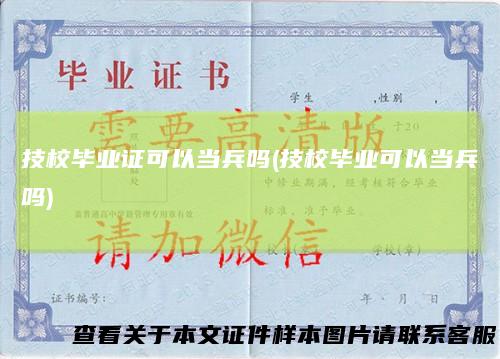 毕业证书
学生　　,性别　　,
需要高清版
于20
技校毕业证可以当兵吗(技校毕业可以当兵
吗)
中修业期满，经考核符合毕业
标准，准予毕业。
盖普通高中学籍管理专用章有效
请加微信
校　　学校(章)
证书编号：
年　月　日
查看关于本文证件样本图片请联系客服